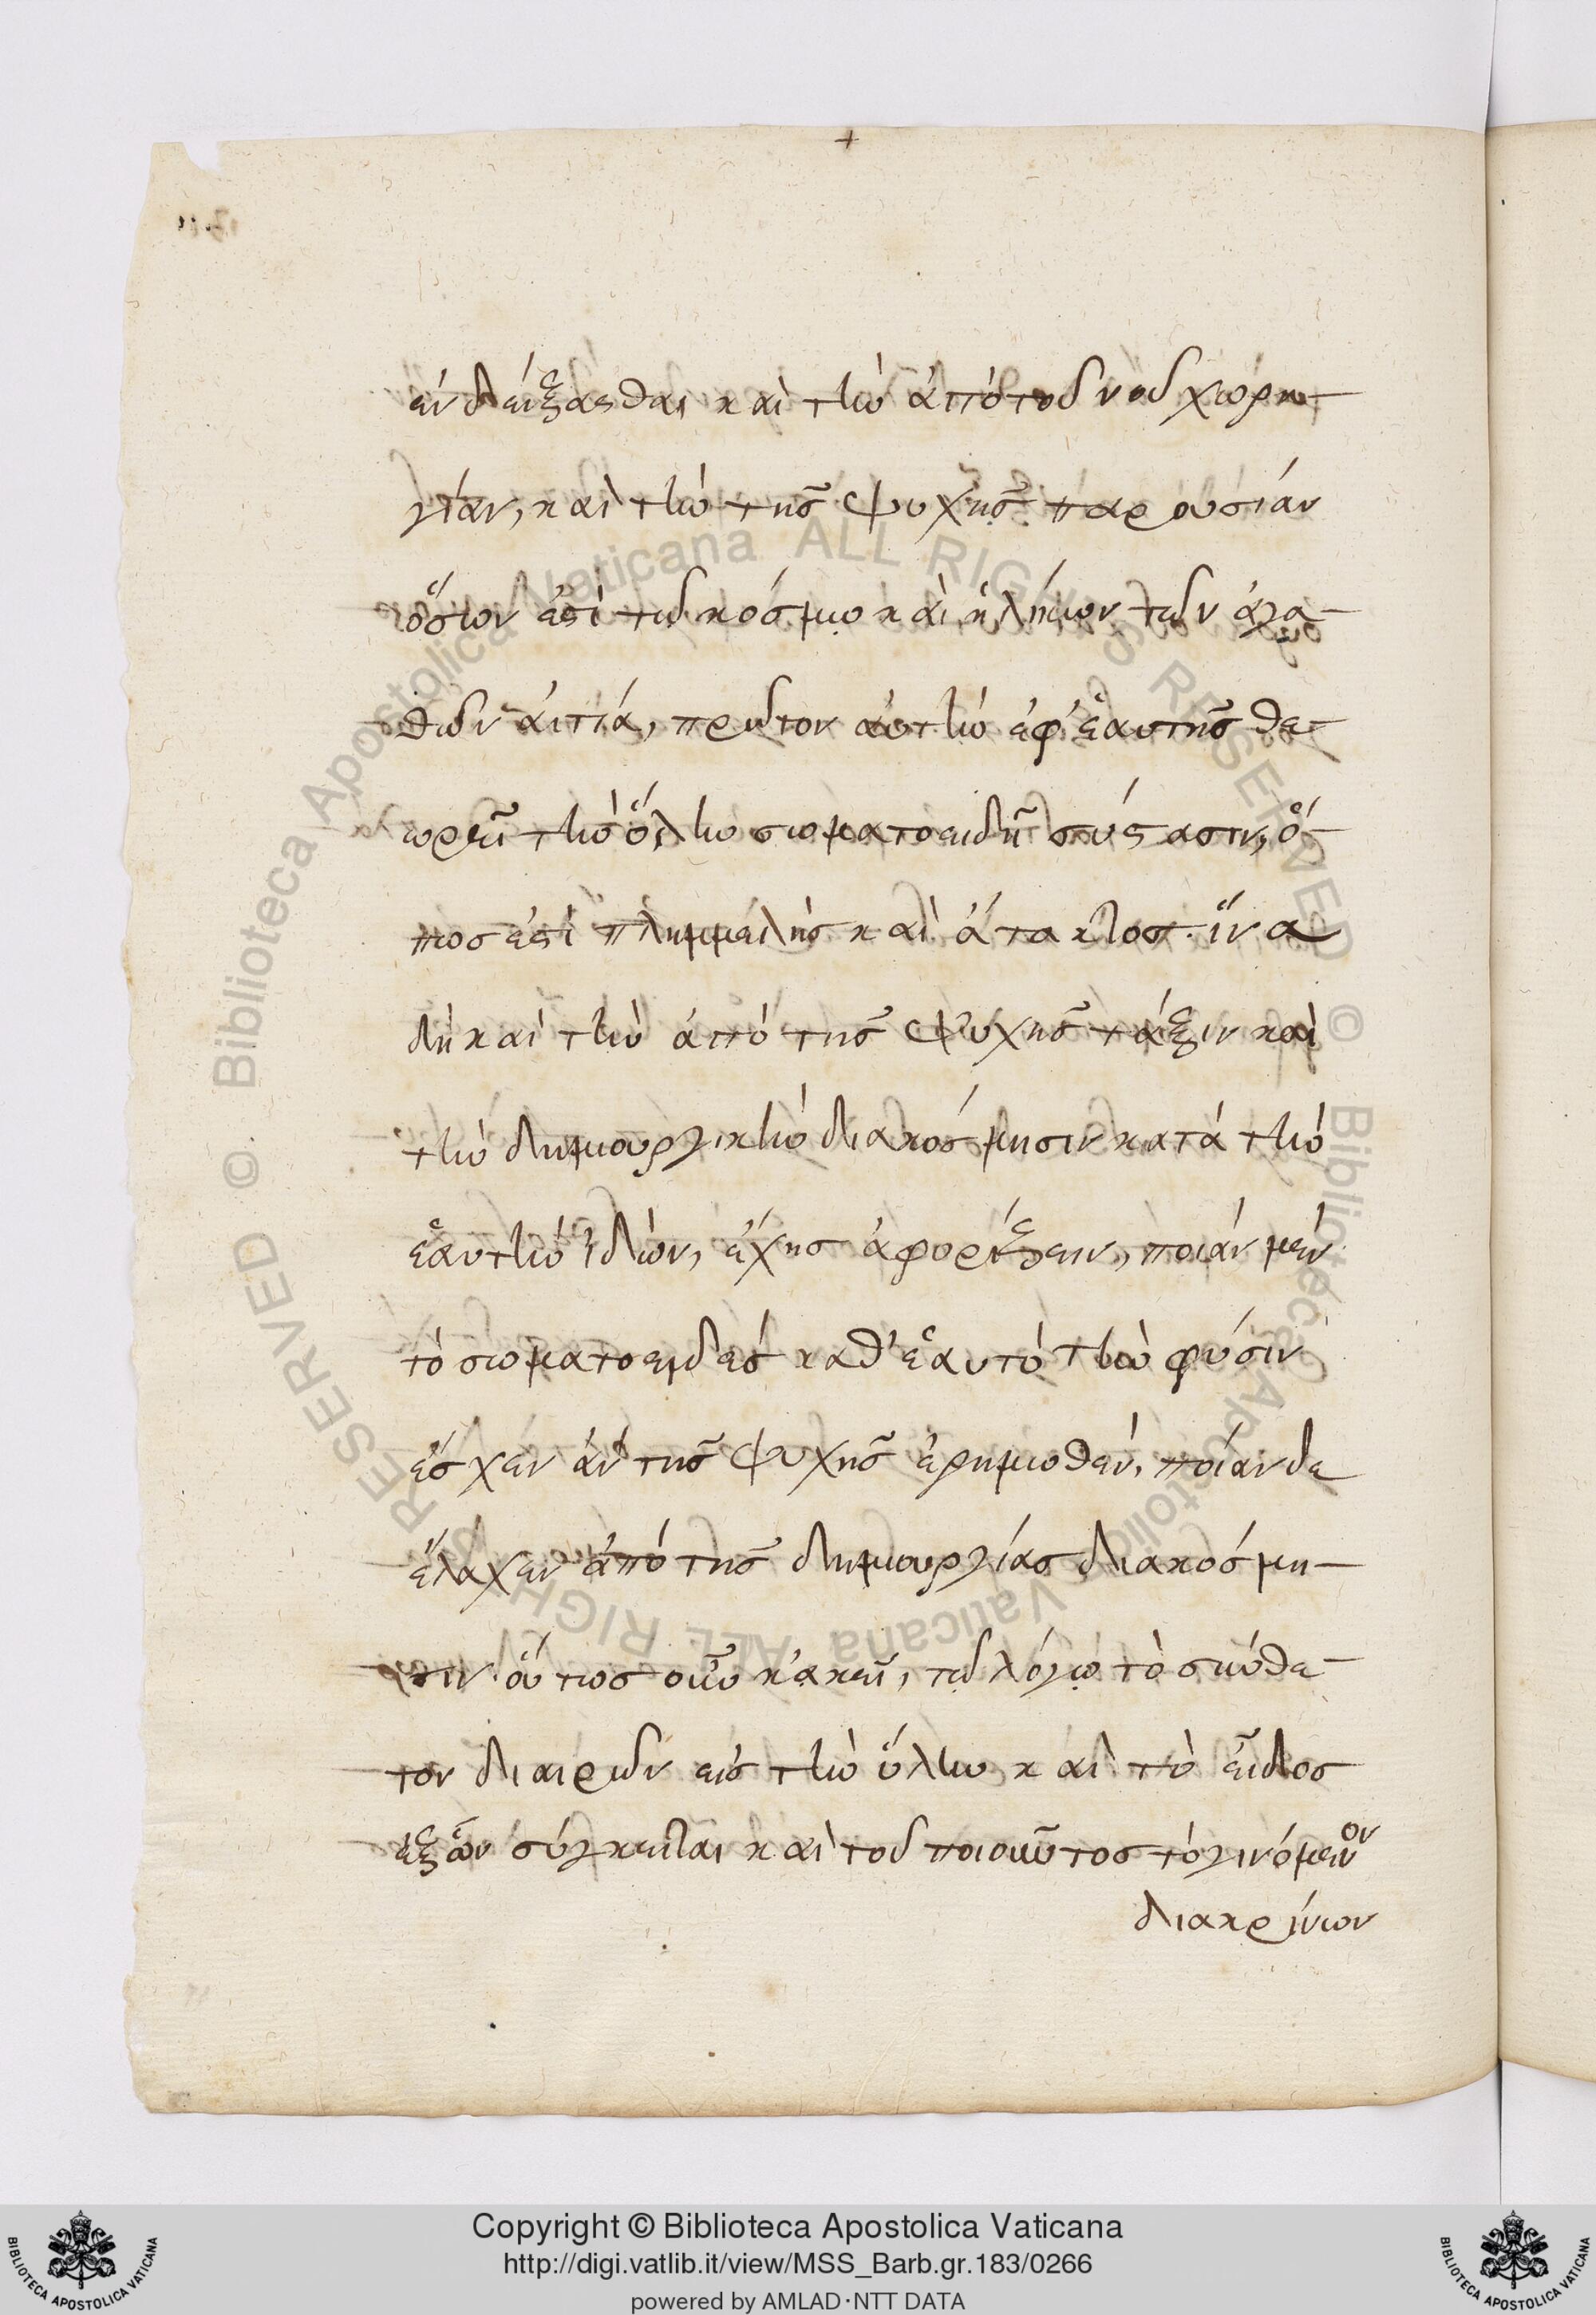 ἐνδείξασθαι καὶ τὴν ἀπὸ τοῦ νοῦ χορη-
γίαν, καὶ τὴν τῆς ψυχῆς παρουσίαν
ὅσων ἐστὶ τῷ κόσμῳ καὶ ἡλήκων τῶν ἀγα-
θῶν αἰτία, πρῶτον αὐτὴν ἐφ' ἑαυτῆς θε-
ωρεῖ τὴν ὅλην σωματοειδῆ σύστασιν, ὅ-
πως ἐστὶ πλημμελὴς καὶ ἄτακτος· ἵνα
δὴ καὶ τὴν ἀπὸ τῆς ψυχῆς τάξιν καὶ
τὴν δημιουργικὴν διακόσμησιν κατὰ τὴν
ἑαυτὴν ἰδὼν, ἔχης ἀφορίζειν, ποίαν μὲν
τὸ σωματοειδὲς καθ' ἑαυτὸ τὴν φύσιν
ἔσχεν ἂν τῆς ψυχῆς ἐρημωθὲν, ποίαν δε
ἔλαχεν ἀπὸ τῆς δημιουργίας διακόσμη-
σιν· οὕτως οὖν κἀκεῖ, τῷ λόγῳ τὸ σύνθε-
τον διαιρῶν εἰς τὴν ὕλην καὶ τὸ εἶδος
ἐξ ὧν σύγκειται καὶ τοῦ ποιοῦντος τὸ γινόμενον
διακρίνων
Copyright © Biblioteca Apostolica Vaticana
http://digi.vatlib.it/view/MSS_Barb.gr.183/0266
powered by AMLAD·NTT DATA